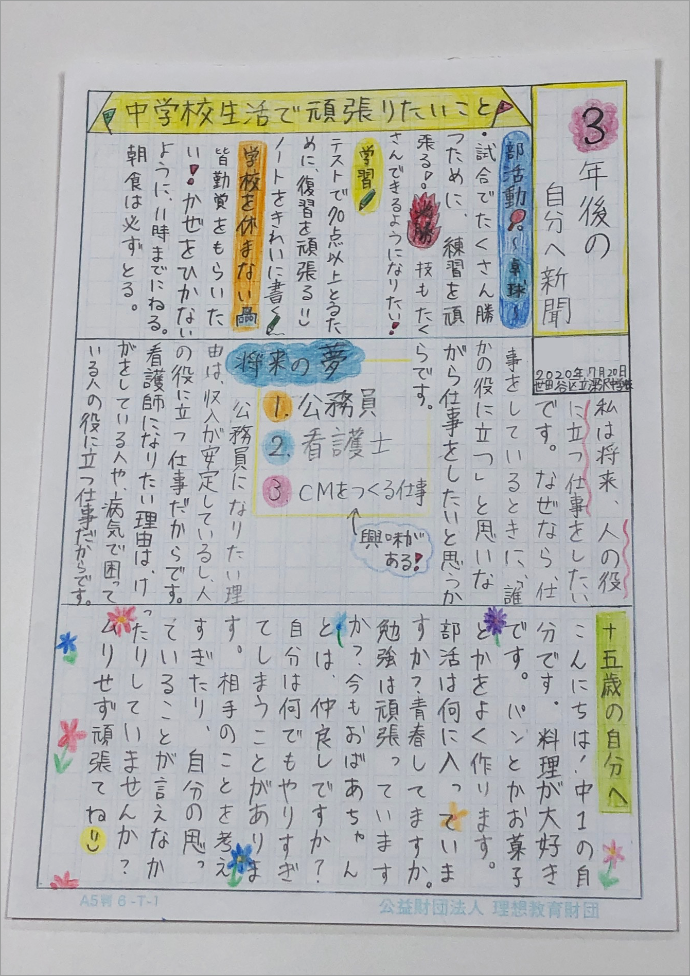 3年後の
自分へ新聞
2020年7月20日
世田谷区立深沢中学校
中学校生活で頑張りたいこと
部活動!〜卓球〜
・試合でたくさん勝
つために、練習を頑
張る!必勝 技もたく
さんできるようになりたい!
学習
テストで70点以上とるた
めに、復習を頑張る!!
ノートをきれいに書く
学校を休まない
皆勤賞をもらいた
い!かぜをひかない
ように、11時までにねる。
朝食は必ずとる。
私は将来、人の役
に立つ仕事をしたい
です。なぜなら、仕
事をしているときに、「誰
かの役に立つ」と思いな
がら仕事をしたいと思うか
らです。
将来の夢
1. 公務員
2. 看護士
3 CMをつくる仕事
興味が
ある!
公務員になりたい理
由は、収入が安定しているし、人
の役に立つ仕事だからです。
看護師になりたい理由は、け
がをしている人や、病気で困って
いる人の役に立つ仕事だからです。
十五歳の自分へ
こんにちは!中1の自
分です。料理が大好き
です。パンとかお菓子
とかをよく作ります。
部活は何に入っていま
すか?青春してますか。
勉強は頑張っています
か?今もおばあちゃん
とは、仲良しですか?
自分は何でもやりすぎ
てしまうことがありま
す。相手のことを考え
すぎたり、自分の思っ
ていることが言えなか
ったりしていませんか?
ムリせず頑張てね
A5判 6-T-1
公益財団法人 理想教育財団